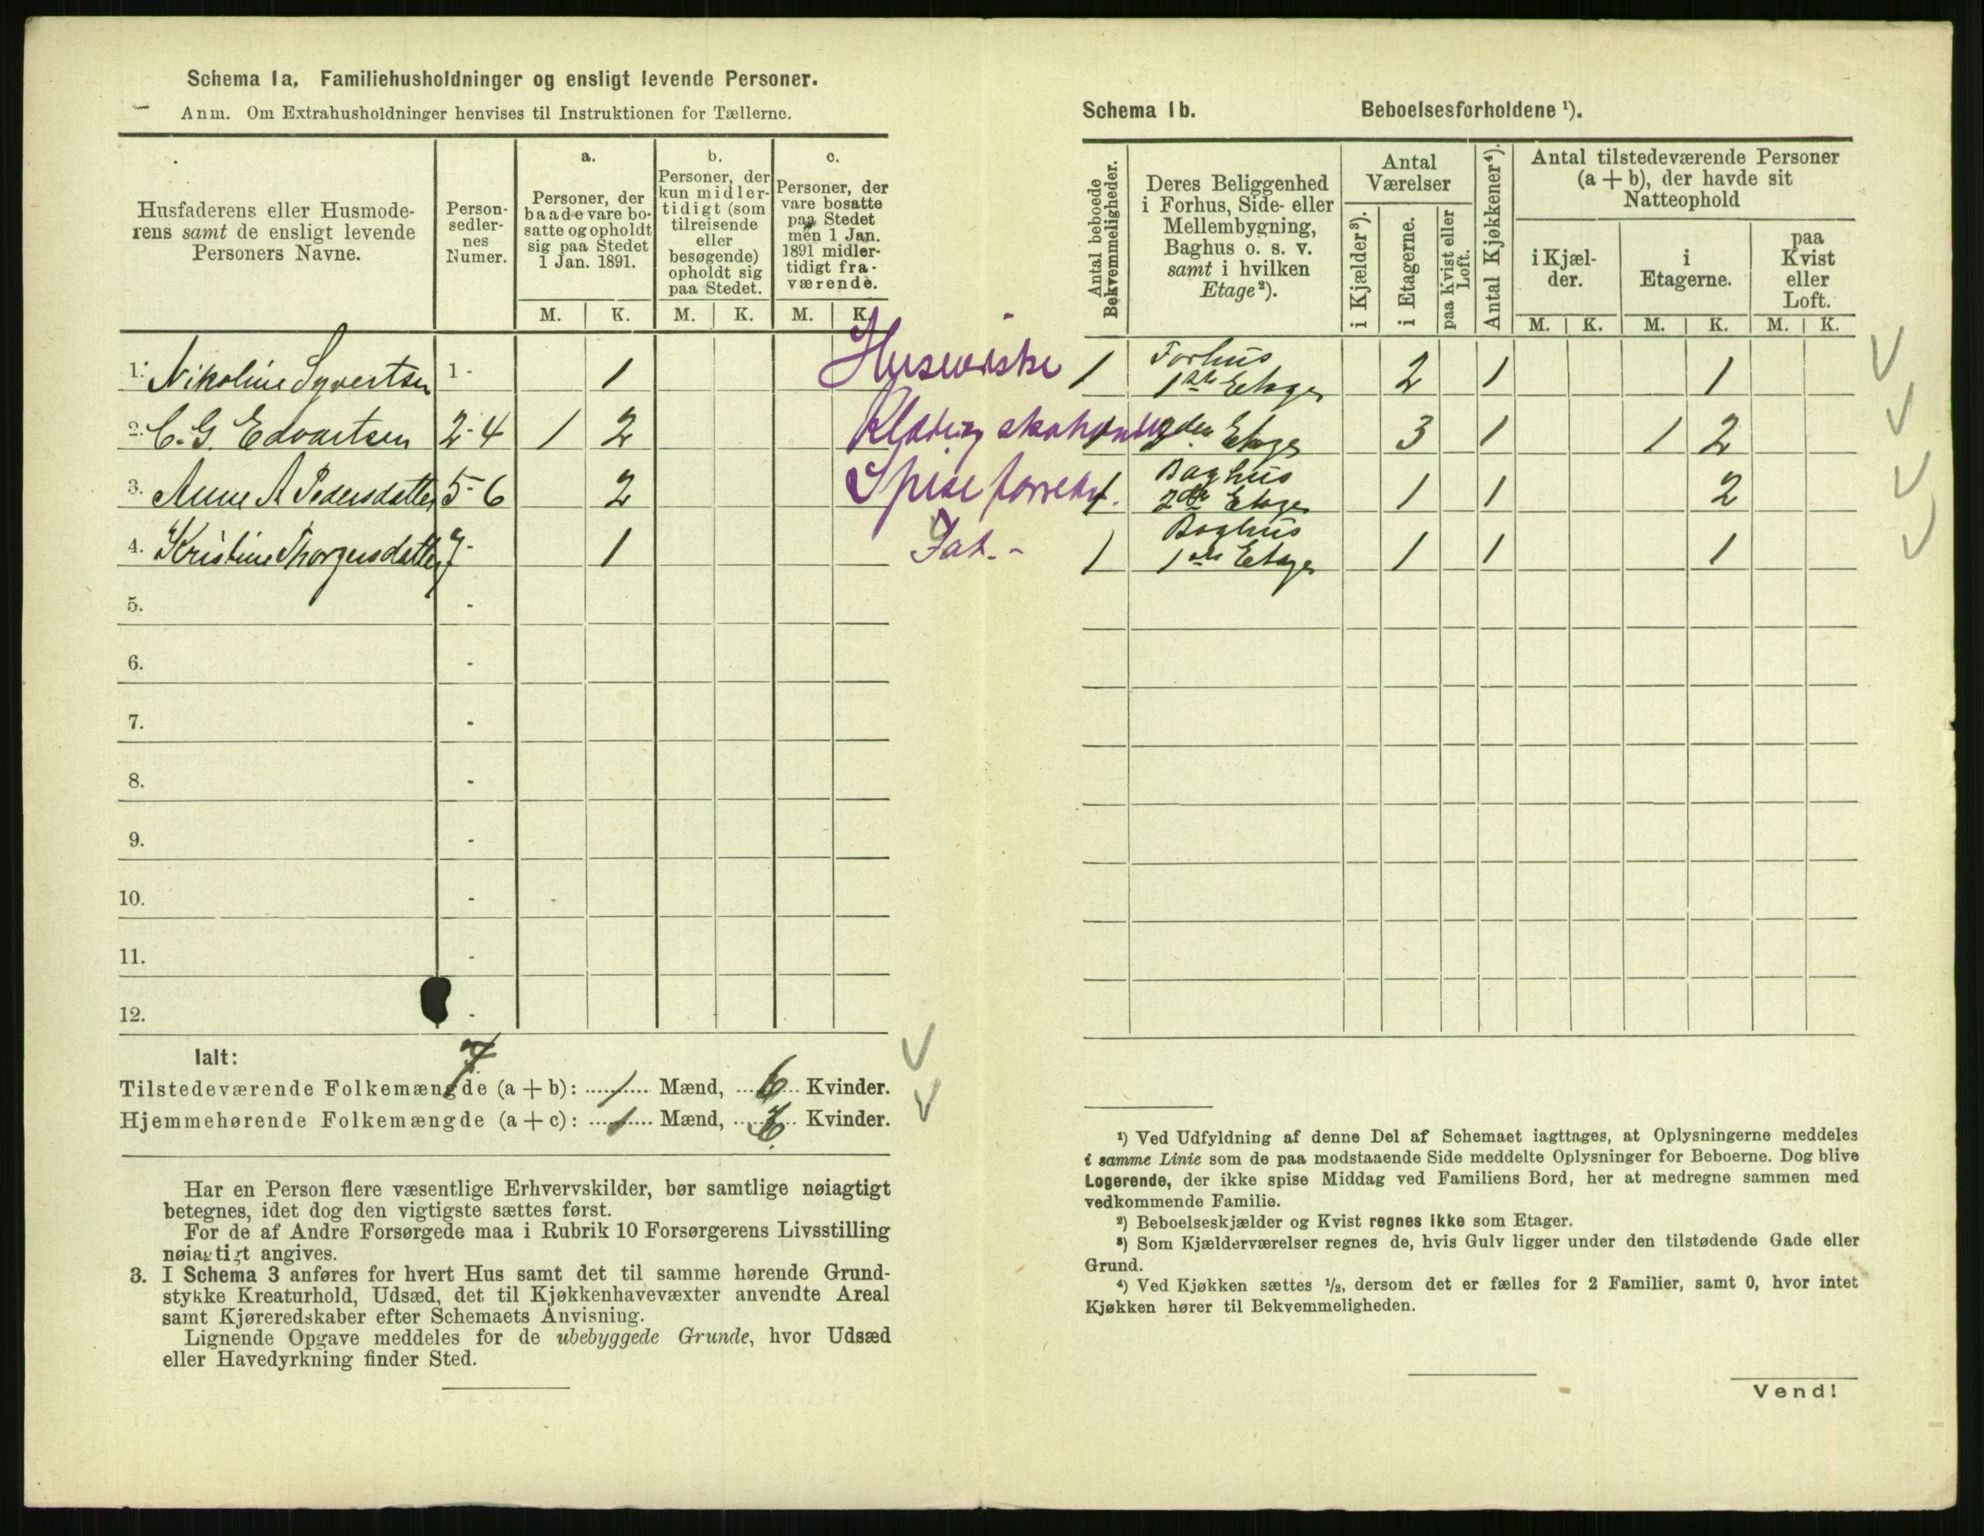 Schema 1a, Familiehusholdninger og ensligt levende Personer.
Anm. Om Extrahusholdninger henvises til Instruktionen for Tællerne.
Husfaderens eller Husmode-
rens samt de ensligt levende
Personers Navne.
Person-
sedler-
nes
Numer.
a.
Personer, der
baade vare bo-
satte og opholdt
sig paa Stedet
1 Jan. 1891.
b.
Personer, der
kun midler-
tidigt (som
tilreisende
eller
besøgende)
opholdt sig
paa Stedet.
c.
Personer, der
vare bosatte
paa Stedet
men 1 Jan.
1891 midler-
tidigt fra-
værende.
M. K. M. K. M. K.
1. Nikoline Syvertsen 1- 1
2. C. G. Edvartsen 2-4 1 2
3. Anne A Pedersdatter 5-6 2
4. Kristine Thorgersdatter 7- 1
5. -
6. -
7. -
8. -
9. -
10. -
11. -
12. -
Ialt: 7
Tilstedeværende Folkemængde (a + b): 1 Mænd, 6 Kvinder.
Hjemmehørende Folkemængde (a + c): 1 Mænd, 6 Kvinder.
Har en Person flere væsentlige Erhvervskilder, bør samtlige nøiagtigt
betegnes, idet dog den vigtigste sættes først.
For de af Andre Forsørgede maa i Rubrik 10 Forsørgerens Livsstilling
nøiagtigt angives.
3. I Schema 3 anføres for hvert Hus samt det til samme hørende Grund-
stykke Kreaturhold, Udsæd, det til Kjøkkenhavevæxter anvendte Areal
samt Kjøreredskaber efter Schemaets Anvisning.
Lignende Opgave meddeles for de ubebyggede Grunde, hvor Udsæd
eller Havedyrkning finder Sted.
Schema 1b. Beboelsesforholdene ¹).
Antal beboede
Bekvemmeligheder.
Deres Beliggenhed
i Forhus, Side- eller
Mellembygning,
Baghus o. s. v.
samt i hvilken
Etage²).
Antal
Værelser
i Kjælder³).
i Etagerne.
paa Kvist eller
Loft.
Antal Kjøkkener⁴).
Antal tilstedeværende Personer
(a + b), der havde sit
Natteophold
i Kjæl-
der.
i
Etagerne.
paa
Kvist
eller
Loft.
M. K. M. K. M. K.
1 Forhus
1ste Etage 2 1 1
1 2den Etage 3 1 1 2
Spiseforretn. 1 Baghus
2den Etage 1 1 2
Fat.- 1 Baghus
1ste Etage 1 1 1
¹) Ved Udfyldning af denne Del af Schemaet iagttages, at Oplysningerne meddeles
i samme Linie som de paa modstaaende Side meddelte Oplysninger for Beboerne. Dog blive
Logerende, der ikke spise Middag ved Familiens Bord, her at medregne sammen med
vedkommende Familie.
²) Beboelseskjælder og Kvist regnes ikke som Etager.
³) Som Kjælderværelser regnes de, hvis Gulv ligger under den tilstødende Gade eller
Grund.
⁴) Ved Kjøkken sættes ½, dersom det er fælles for 2 Familier, samt 0, hvor intet
Kjøkken hører til Bekvemmeligheden.
Vend!